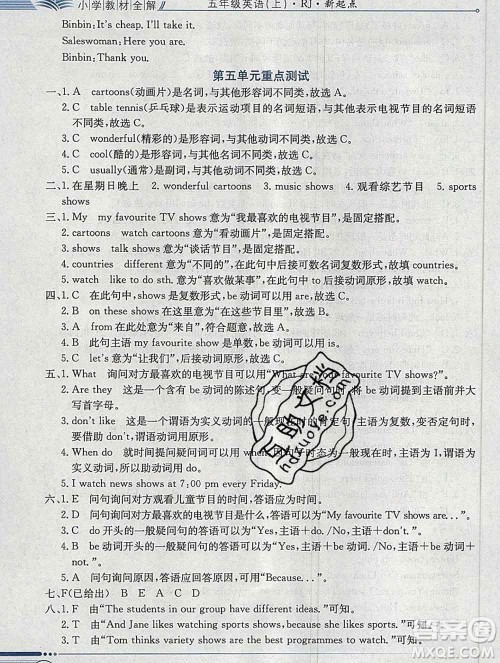 小学教材全解 五年级英语(上)·RJ·新起点
Binbin: It's cheap. I'll take it.
Saleswoman: Here you are.
Binbin: Thank you.
第五单元重点测试
一、1. A cartoons(动画片)是名词,与其他形容词不同类,故选 A。
2. C table tennis(乒乓球)是表示运动项目的名词短语,与其他表示电视节目的名词短语不同类,故选 C。
3. C wonderful(精彩的)是形容词,与其他动词不同类,故选 C。
4. C cool(酷的)是形容词,与其他名词不同类,故选 C。
5. C usually(通常)是副词,与其他动词不同类,故选 C。
二、1. 在星期日晚上 2. wonderful cartoons 3. music shows 4. 观看综艺节目 5. sports
shows
三、1. My my favourite TV shows 意为“我最喜欢的电视节目”,是固定搭配。
2. cartoons watch cartoons 意为“看动画片”,是固定搭配。
3. shows talk shows 意为“谈话节目”,是固定搭配。
4. countries different 意为“不同的”,在此句中后接可数名词复数形式,故填 countries。
5. watch like to do sth. 意为“喜欢做某事”,在此句中后接动词原形,故填 watch。
四、1. C 在此句中,shows 是复数形式,be 动词可以用 are,故选 C。
2. B on these shows 意为“在这些节目里”,故选 B。
3. A from 在此处意为“来自”,符合题意,故选 A。
4. B 此句主语 my favourite show 是单数,be 动词用 is,故选 B。
5. C let's 意为“让我们”,后接动词原形,故选 C。
五、1. What 询问对方最喜欢的电视节目可以用“What are your favourite TV shows?”。
2. Are they 这是一个含有 be 动词的陈述句,变一般疑问句时,将 be 动词提到主语前并大
写首字母。
3. don't like 这是一个谓语为实义动词的一般现在时的肯定句,主语为复数,变否定句时,
要用 don't,谓语动词用原形。
4. When do 就时间提特殊疑问词可以用 when,句子主语是第二人称 you,谓语动词为
实义动词,所以助动词用 do。
5. I watch news shows at 7:00 pm every Friday.
六、1. E 问句询问对方观看儿童节目的时间,答语应为时间。
2. D 问句询问对方最喜欢的电视节目,答语可以为“My favourite TV shows are...”。
3. C do 开头的一般疑问句的答语可以为“Yes,主语+do./No,主语+don't.”。
4. B be 动词开头的一般疑问句的答语可以为“Yes,主语+be 动词./No,主语+be 动词+
not.”。
5. A 问句询问原因,答语应为原因,可以用“Because...”。
七、F(已给出) B E A C D
八、1. F 由“The students in our group have different ideas.”可知。
2. T 由“And Jane likes watching sports shows, because she likes sports.”可知。
3. T 由“Tom thinks variety shows are the best programmes to watch.”可知。
互助文档
hdzuoye.com
作业帮
MXQE.COM